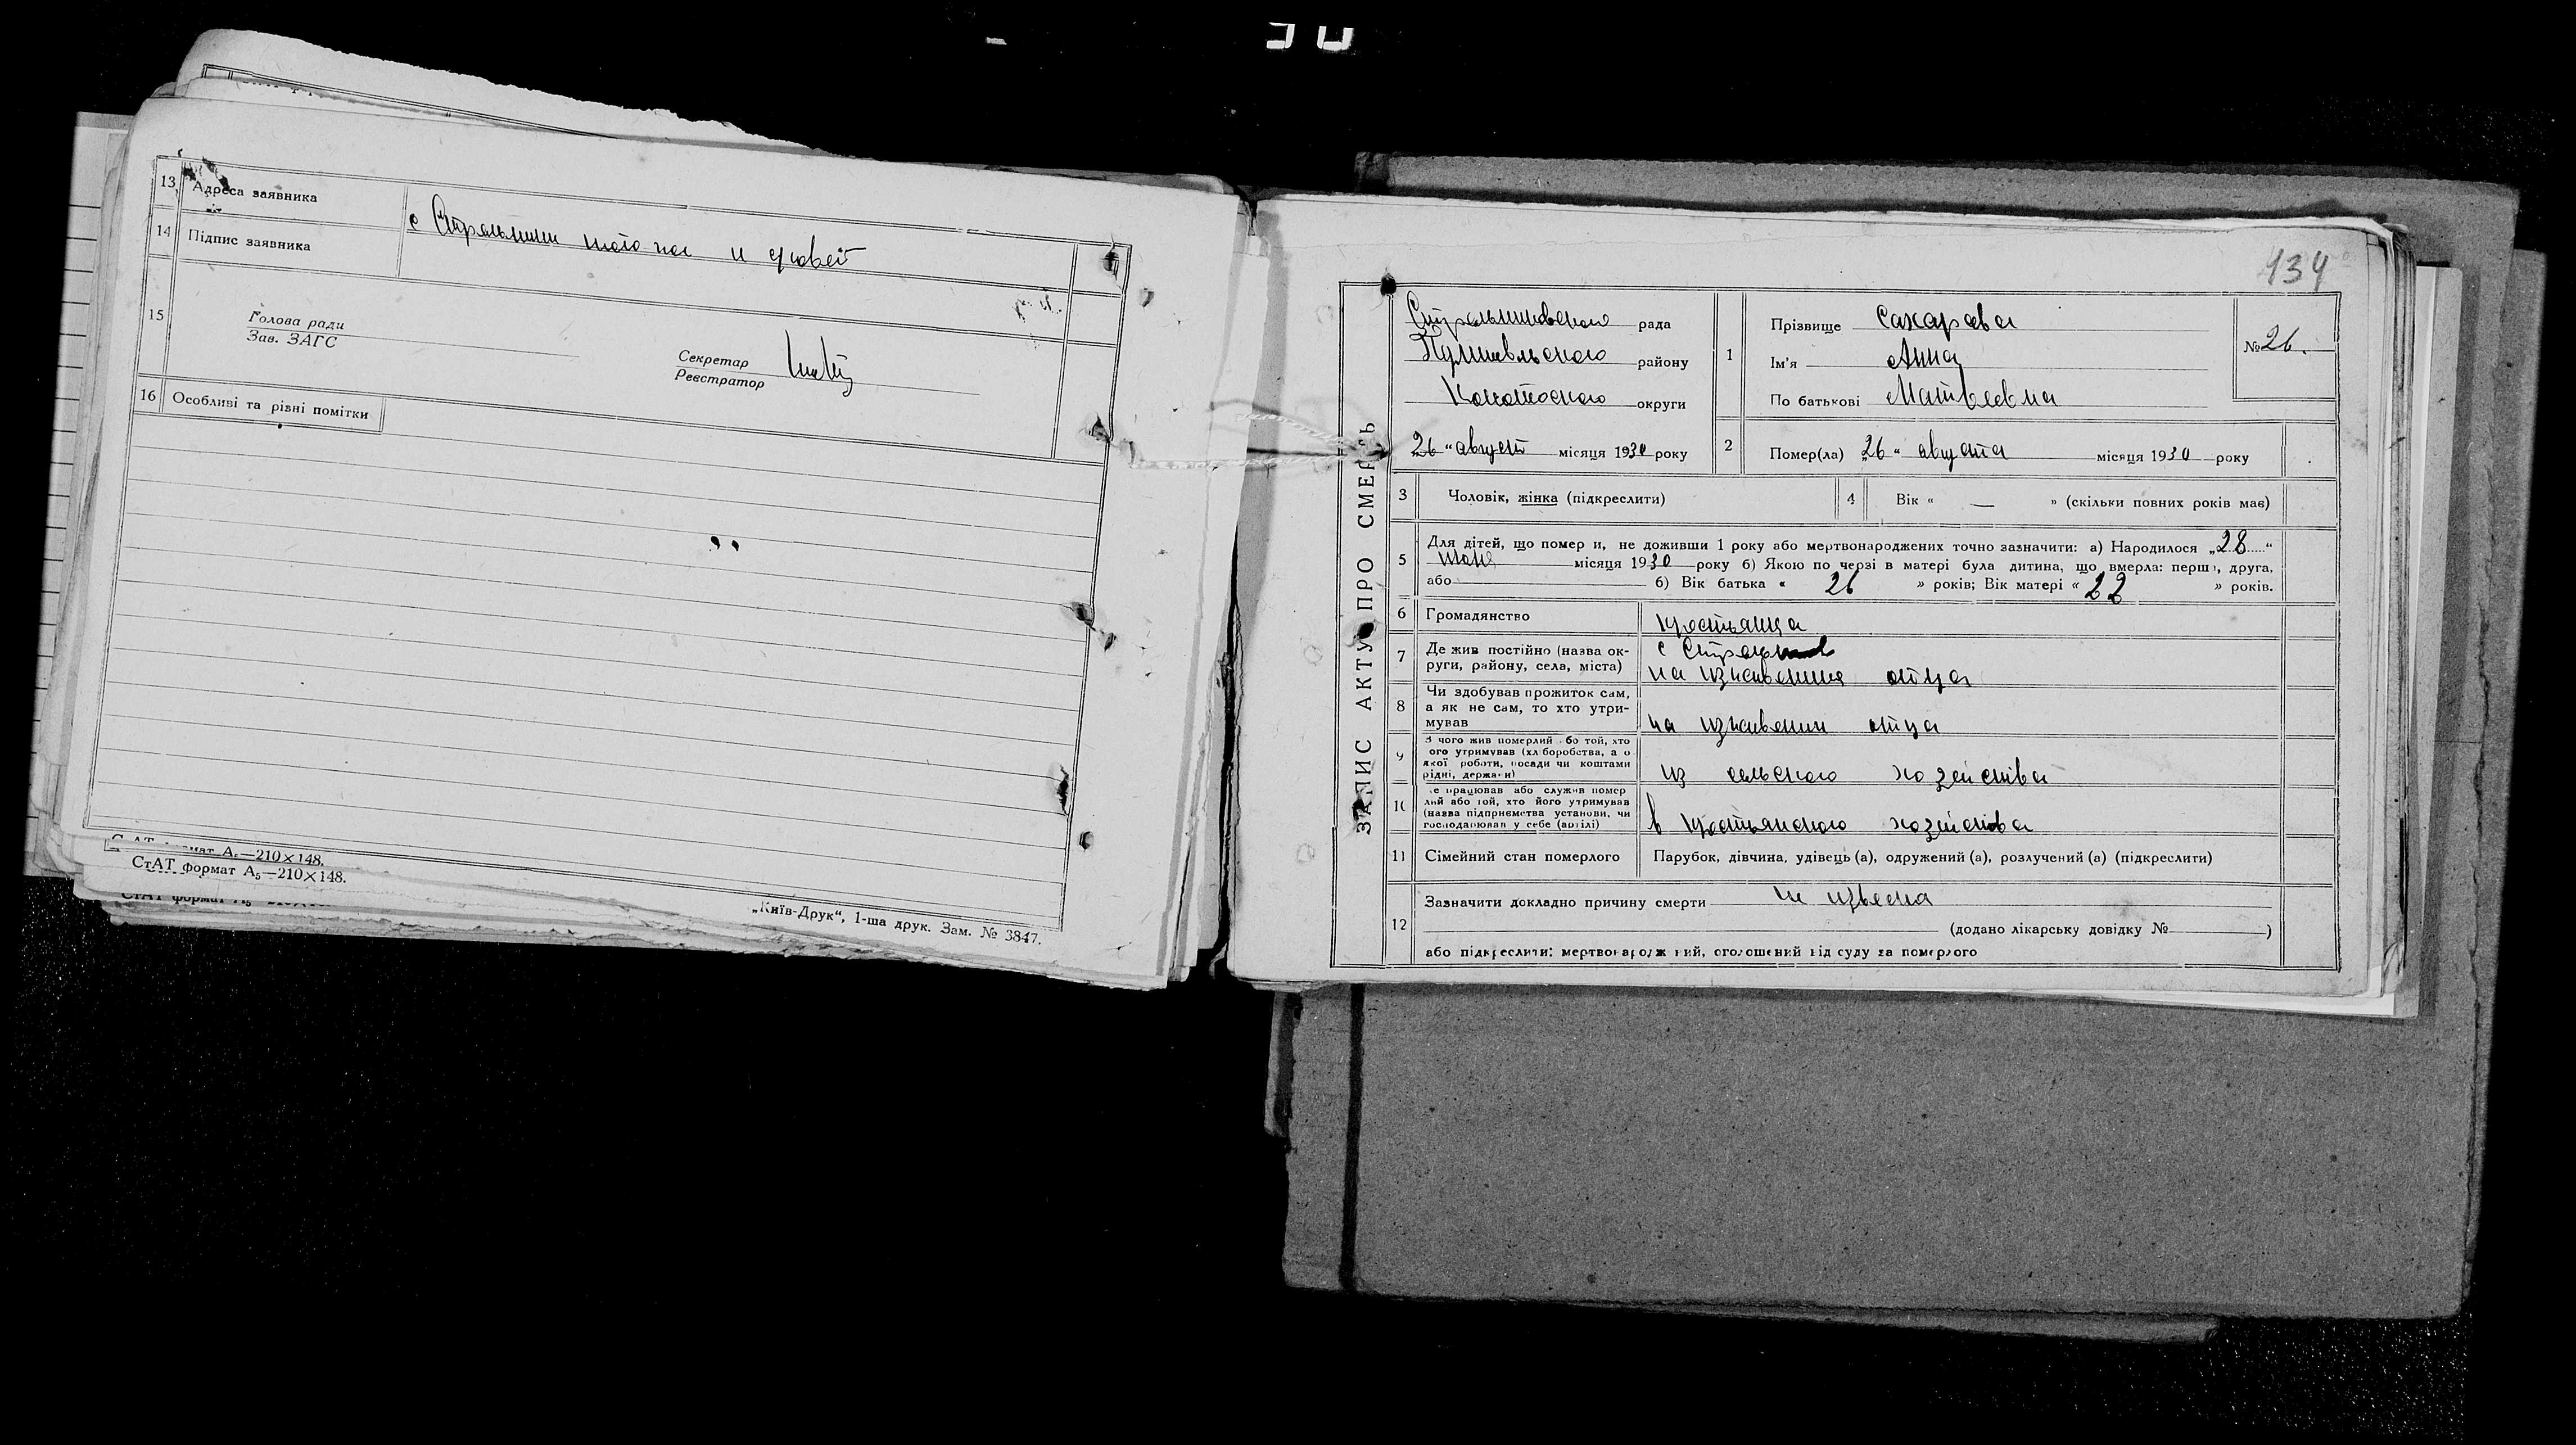 13 Адреса заявника
с Стрельники того-же
14 Підпис заявника
15
Голова ради
Зав. ЗАГС
Секретар
Реєстратор
16 Особливі та різні помітки
СтАТ формат А5—210×148.
„Київ-Друк“, 1-ша друк. Зам. № 3847.
134
ЗАПИС АКТУ ПРО СМЕРТЬ
Стрельниковского рада
Путивльского району
Конотоского округи
„26“ август місяця 1930 року
1
Прізвище Сахарова
Ім'я Анна
По батькові Матвеевна
№ 26.
2 Помер(ла) „26“ августа місяця 1930 року
3 Чоловік, жінка (підкреслити)
4 Вік « — » (скільки повних років має)
5 Для дітей, що помер и, не доживши 1 року або мертвонароджених точно зазначити: а) Народилося „28“
місяця 1930 року б) Якою по черзі в матері була дитина, що вмерла: перша, друга,
або б) Вік батька « 26 » років; Вік матері « 22 » років.
6 Громадянство крестьянка
7 Де жив постійно (назва ок-
руги, району, села, міста)
с
на иждивение отца
8 Чи здобував прожиток сам,
а як не сам, то хто утри-
мував
на иждивении отца
9 З чого жив померлий або той, хто
ого утримував (хліборобства, а о
якої роботи, посади чи коштами
рідні, держави)
из сельского хозейства
10 е працював або служив помер
лий або той, хто його утримував
(назва підприємства установи, чи
господарював у себе (артілі)
в крестьянского хозейства
11 Сімейний стан померлого Парубок, дівчина, удівець (а), одружений (а), розлучений (а) (підкреслити)
12 Зазначити докладно причину смерти не извесна
(додано лікарську довідку № )
або підкреслити: мертвонароджений, оголошений від суду за померлого